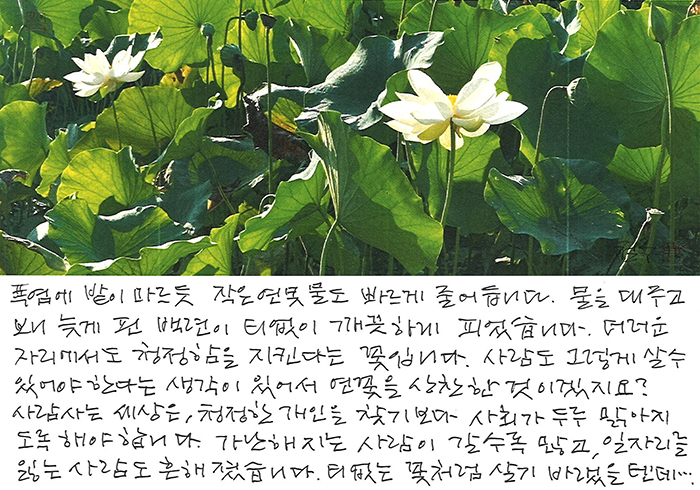 폭염에 밭이 마르듯 작은연못물도 빠르게 줄어듭니다. 물을 대주고
보니 늦게 핀 백련이 티없이 깨끗하게 피었습니다. 더러운
자리에서도 청정함을 지킨다는 꽃입니다. 사람도 그렇게 살수
있어야 한다는 생각이 있어서 연꽃을 상찬한 것이겠지요?
사람사는 세상은, 청정한 개인을 찾기보다 사회가 두루 맑아지
도록 해야 합니다. 가난해지는 사람이 갈수록 많고, 일자리를
잃는 사람도 흔해 졌습니다. 티없는 꽃처럼 살기 바랬을텐데….